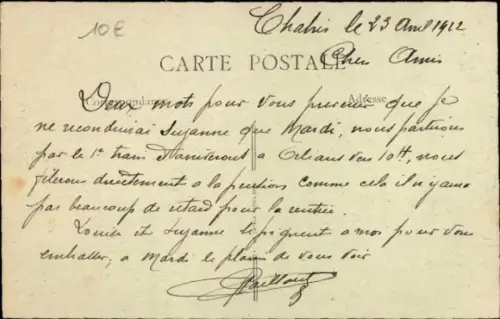 10€
Chabris le 23 Avril 1912
CARTE POSTALE
Chers Amis
Correspondance
Adresse
Deux mots pour vous prevenir que je
ne reconduirai Suzanne que Mardi, nous partirons
par le 1er train d'arriveront a Orléans vers 10H, nous
filerons directement a la pension comme cela il n'y aura
pas beaucoup de retard pour la rentrée.
Louise et Suzanne se joignent a moi pour vous
embrasser, a Mardi le plaisir de vous voir